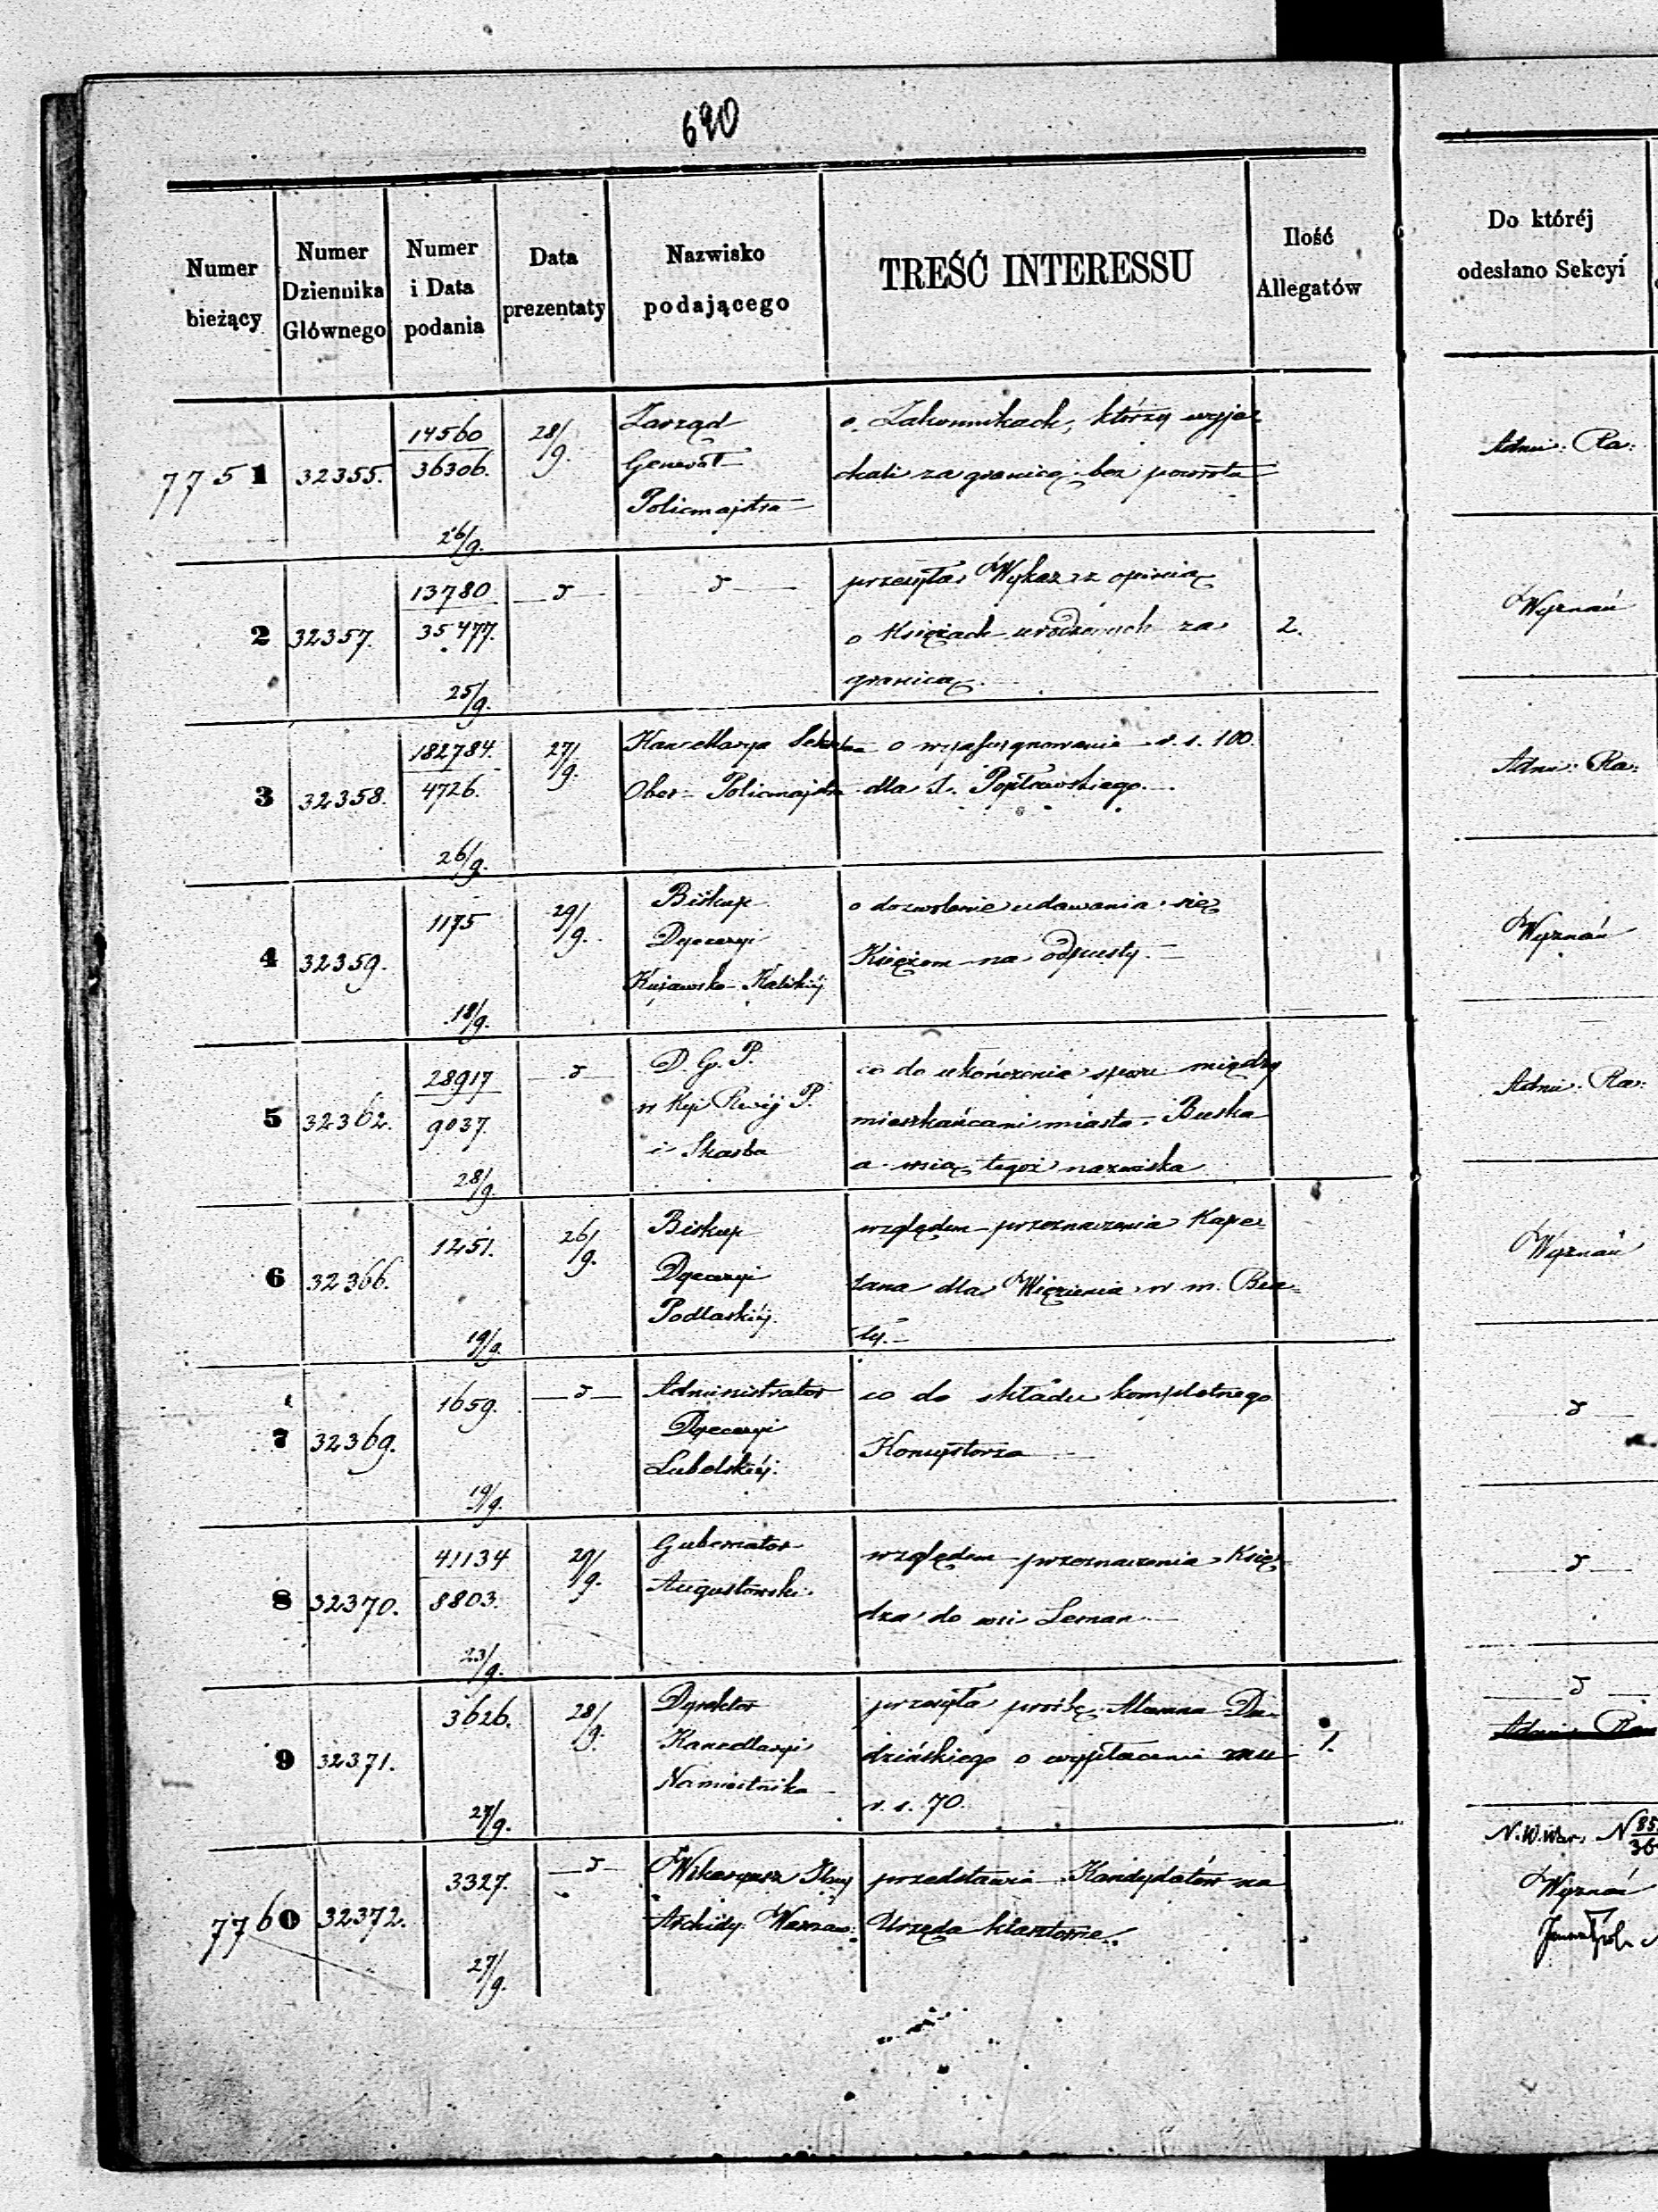 620
Numer bieżący
Numer Dziennika Głównego
Numer i Data podania
Data prezentaty
Nazwisko podającego
TREŚĆ INTERESSU
Ilość Allegatów
Do któréj odesłano Sekcyi
7751 32355. 14560 28/9. Zarząd o Zakonnikach, którzy wyje-
36306. Generał chali za granicę bez powrotu Admi: Ra:
Policmajstra
26/9.
2 32357. 13780 d d przesyła Wykaz z opinią
35477. o Księżach urodzonych za 2. Wyznań
25/9. granicą
3 32358. 182784. 27/9. Kancellarya o wyasygnowanie r. s. 100.
4726. Ober-Policmajstra dla Admi: Ra:
26/9.
4 32359. 1175 29/9. Biskup o dozwolenie udawania się
Dyecezyi Księżom na odpusty. Wyznań
18/9. Kujawsko-Kaliskiéj
5 32362. 28917 d D. G. P. co do ukończenia sporu między
9037. w P. mieszkańcami miasta Buska Admi: Ra:
28/9. i Skarbu a wsią tegoż nazwiska
6 32366. 1251. 26/9. Biskup względem przeznaczenia Kape-
Dyecezyi lana dla Więzienia w m. Wyznań
19/9. Podlaskiéj.
7 32369. 1659. d Administrator co do składu kompletnego d
Dyecezyi Konsystorza
19/9. Lubelskiéj.
8 32370. 41134 29/9. Gubernator względem przeznaczenia Księ-
8803. Augustowski dza do wsi Leman d
23/9.
9 32371. 3626. 28/9. Dyrektor przesyła prośbę d
Kancellaryi dzińskiego o wypłacenie mu 1.
27/9. Namiestnika r. s. 70.
7760 32372. 3327. d przedstawia Kandydatów na Wyznań
27/9. Archidy. Warszaw: Urzęda klasztorne.